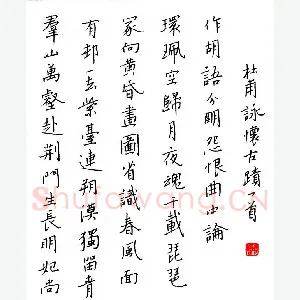 羣山萬壑赴荆門生長明妃尚
有邨一去紫臺連朔漠獨留青
冢向黄昏畫圖省識春風面
環珮空歸月夜魂千載琵琶
作胡語分明怨恨曲中論
杜甫詠懷古蹟首
Shufawang.CN